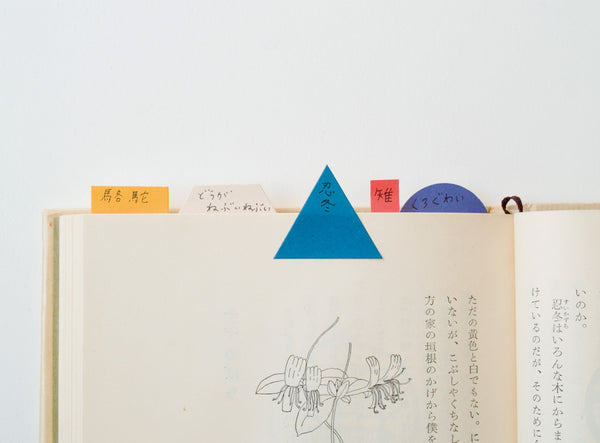 駱駝
どうが
ねぶいねぶい
忍冬
雉
くろぐわい
いのか。
忍冬はいろんな木にからま
すいかずら
けているのだが、そのために
ただの黄色と白でもない。に
いないが、こぶしやくちな
方の家の垣根のかげから僕を